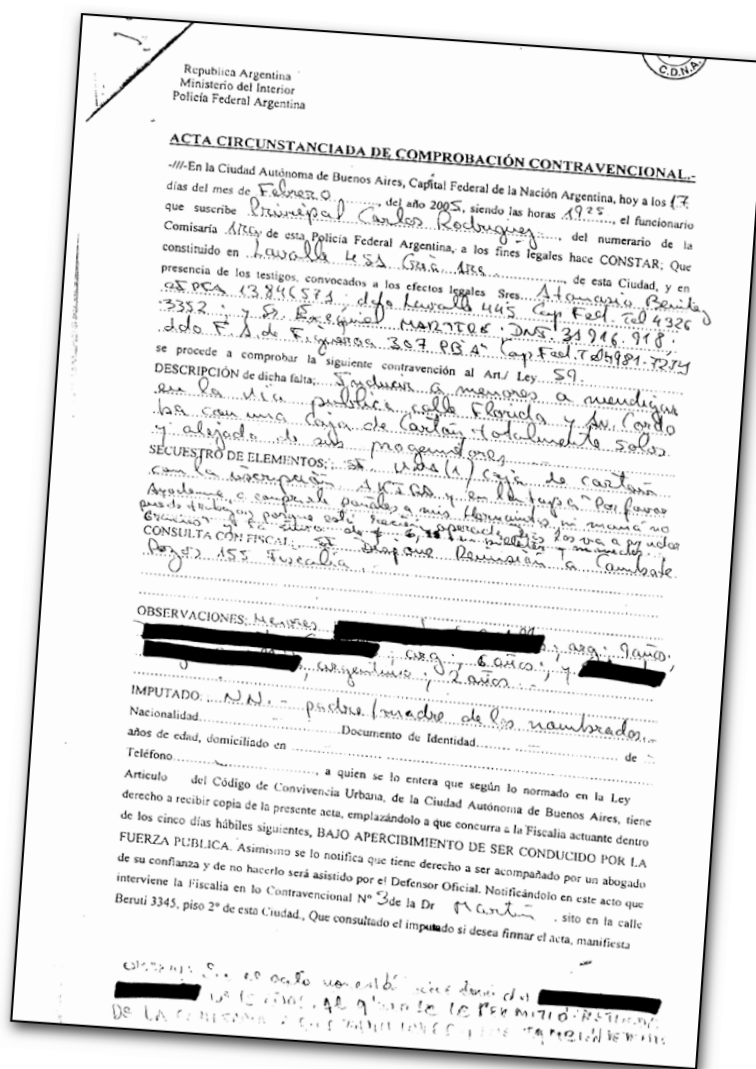 C.D.N.A.
Republica Argentina
Ministerio del Interior
Policía Federal Argentina
ACTA CIRCUNSTANCIADA DE COMPROBACIÓN CONTRAVENCIONAL.-
-///-En la Ciudad Autónoma de Buenos Aires, Capital Federal de la Nación Argentina, hoy a los 17
días del mes de Febrero, del año 2005, siendo las horas 1925, el funcionario
que suscribe Principal Carlos Rodriguez, del numerario de la
Comisaría 1ra. de esta Policía Federal Argentina, a los fines legales hace CONSTAR; Que
constituido en Lavalle 451 Cria 1ra, de esta Ciudad, y en
presencia de los testigos, convocados a los efectos legales Sres. Atanasio Benitez
Lavalle 445 Cap Fed. Tel 4326
3352, y Sr. DNI. 31916.918.
307 PB "A" Cap Fed. T 4981-7274
se procede a comprobar la siguiente contravención al Art./ Ley 59.
DESCRIPCIÓN de dicha falta; Inducir a menores a mendigar
en la vía publica calle Florida y Av. Cordo
ba con una Caja de Cartón totalmente solos
y alejado de sus progenitores
SECUESTRO DE ELEMENTOS; una (1) Caja de cartón
con la inscripción y en la tapa "Por favor
a comprarle pañales a mis hermanitos, mi mamá no
puede trabajar porque está recién operada, Dios los va a ayudar
CONSULTA CON FISCAL; Se Dispone Remisión a Combate
Pozos 155 Fiscalía.
OBSERVACIONES; Menores arg. 9 años;
arg; 6 años; y
argentino; 2 años.-
IMPUTADO: N.N. - padre/madre de los nombrados.-
Nacionalidad Documento de Identidad de
años de edad, domiciliado en
Teléfono , a quien se lo entera que según lo normado en la Ley
Articulo del Código de Convivencia Urbana, de la Ciudad Autónoma de Buenos Aires, tiene
derecho a recibir copia de la presente acta, emplazándolo a que concurra a la Fiscalia actuante dentro
de los cinco días hábiles siguientes, BAJO APERCIBIMIENTO DE SER CONDUCIDO POR LA
FUERZA PUBLICA. Asimismo se lo notifica que tiene derecho a ser acompañado por un abogado
de su confianza y de no hacerlo será asistido por el Defensor Oficial. Notificándolo en este acto que
interviene la Fiscalia en lo Contravencional Nº 3 de la Dr Martin , sito en la calle
Beruti 3345, piso 2º de esta Ciudad., Que consultado el imputado si desea firmar el acta, manifiesta
SE LE PERMITIO
DE LA TAMBIEN